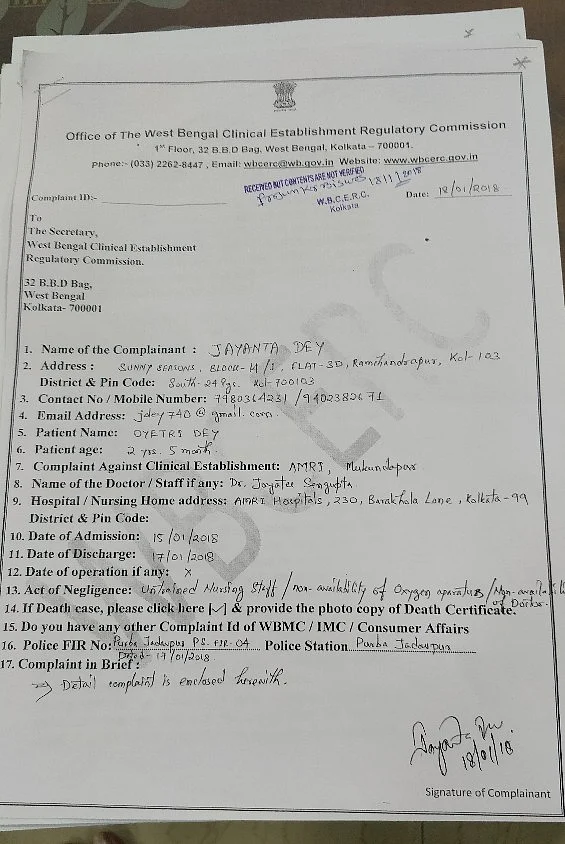 Office of The West Bengal Clinical Establishment Regulatory Commission
1st Floor, 32 B.B.D Bag, West Bengal, Kolkata – 700001.
Phone:- (033) 2262-8447 , Email: wbcerc@wb.gov.in Website: www.wbcerc.gov.in
RECEIVED BUT CONTENTS ARE NOT VERIFIED
18/1/2018
W.B.C.E.R.C.
Kolkata
Complaint ID:-
Date: 18/01/2018
To
The Secretary,
West Bengal Clinical Establishment
Regulatory Commission.
32 B.B.D Bag,
West Bengal
Kolkata- 700001
WBCERC
1. Name of the Complainant : JAYANTA DEY
2. Address : SUNNY SEASONS, BLOCK-4/1, FLAT-3D, Ramchandrapur, Kol-103
District & Pin Code: South-24 Pgs. Kol-700103
3. Contact No / Mobile Number: 7980364231 / 9402382671
4. Email Address: jdey740@gmail.com
5. Patient Name: OYETRI DEY
6. Patient age: 2 yrs. 5 month.
7. Complaint Against Clinical Establishment: AMRI, Mukundapur
8. Name of the Doctor / Staff if any: Dr. Jayatee Sengupta
9. Hospital / Nursing Home address: AMRI Hospitals, 230, Barakhola Lane, Kolkata-99
District & Pin Code:
10. Date of Admission: 15/01/2018
11. Date of Discharge: 17/01/2018
12. Date of operation if any: X
13. Act of Negligence: Untrained Nursing Staff / non-availability of Oxygen aparatus /
of
14. If Death case, please click here [✓] & provide the photo copy of Death Certificate.
15. Do you have any other Complaint Id of WBMC / IMC / Consumer Affairs
16. Police FIR No: Purba Jadavpur P.S. FIR-04 Police Station Purba Jadavpur
Dated - 17/01/2018
17. Complaint in Brief :
⇒ Detail complaint is enclosed herewith.
18/01/18
Signature of Complainant